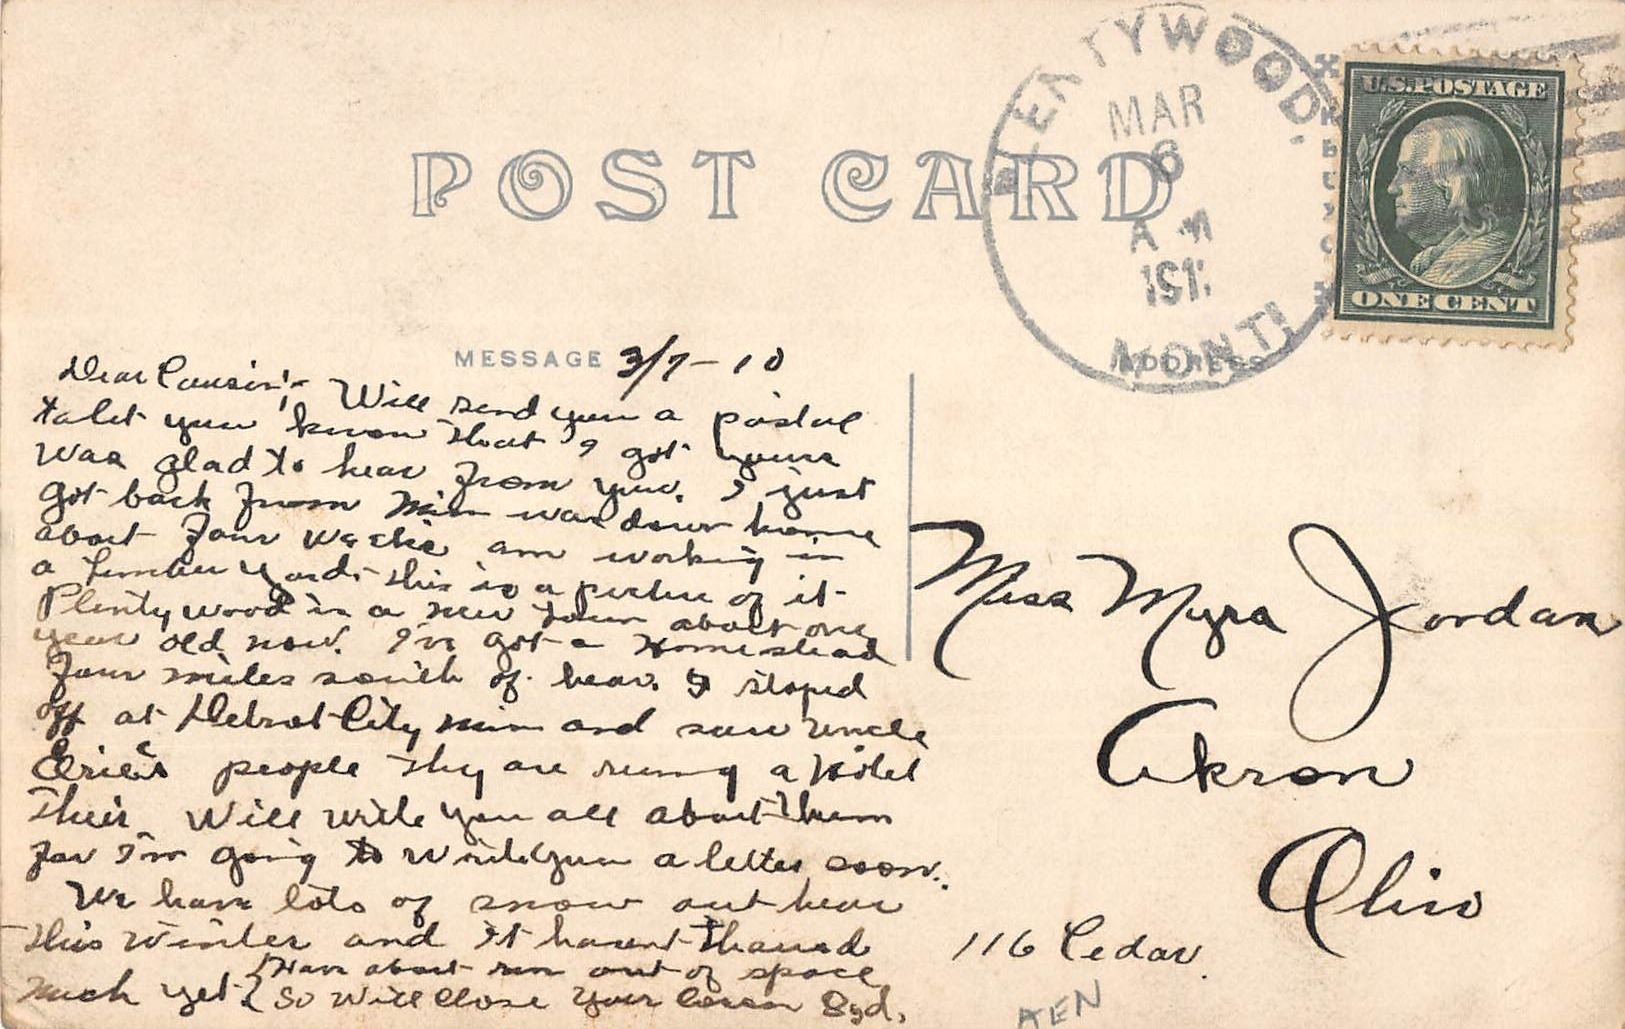 POST CARD
PLENTYWOOD.
MAR
6
A M
191
MONT.
U.S. POSTAGE
ONE CENT
MESSAGE 3/7-10
ADDRESS
Dear Cousin;- Will send you a postal
to let you know that I got yours
was glad to hear from you. I just
got back from Minn was down home
about four weeks am working in
a lumber yard. this is a picture of it
Plentywood is a new town about one
year old now. I've got a Homestead
four miles south of hear. I stoped
off at Detroit City Minn and saw uncle
people they are runing a Hotel
Their Will write you all about them
for I'm going to write you a letter soon.
We have lots of snow out hear
this winter and it havent thawed
much yet. { Have about run out of space
So will close Your Cousin Syd.
Miss Myra Jordan
Akron
Ohio
116 Cedar.
AEN